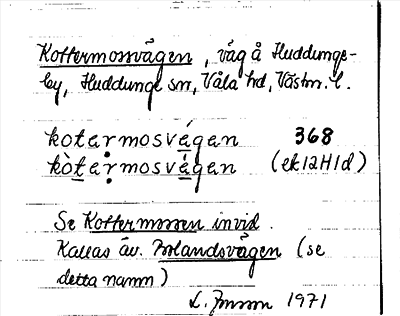 Kottermossvägen, väg å Huddunge-
by, Huddunge sn, Våla hd, Västm. l.
kotarmosvé̱gan 368
kò̱tạṛmosvé̱gan (ek 12H1d)
Se Kottermossen invid.
Kallas äv. Morlandsvägen (se
detta namn)
L. Jonson 1971